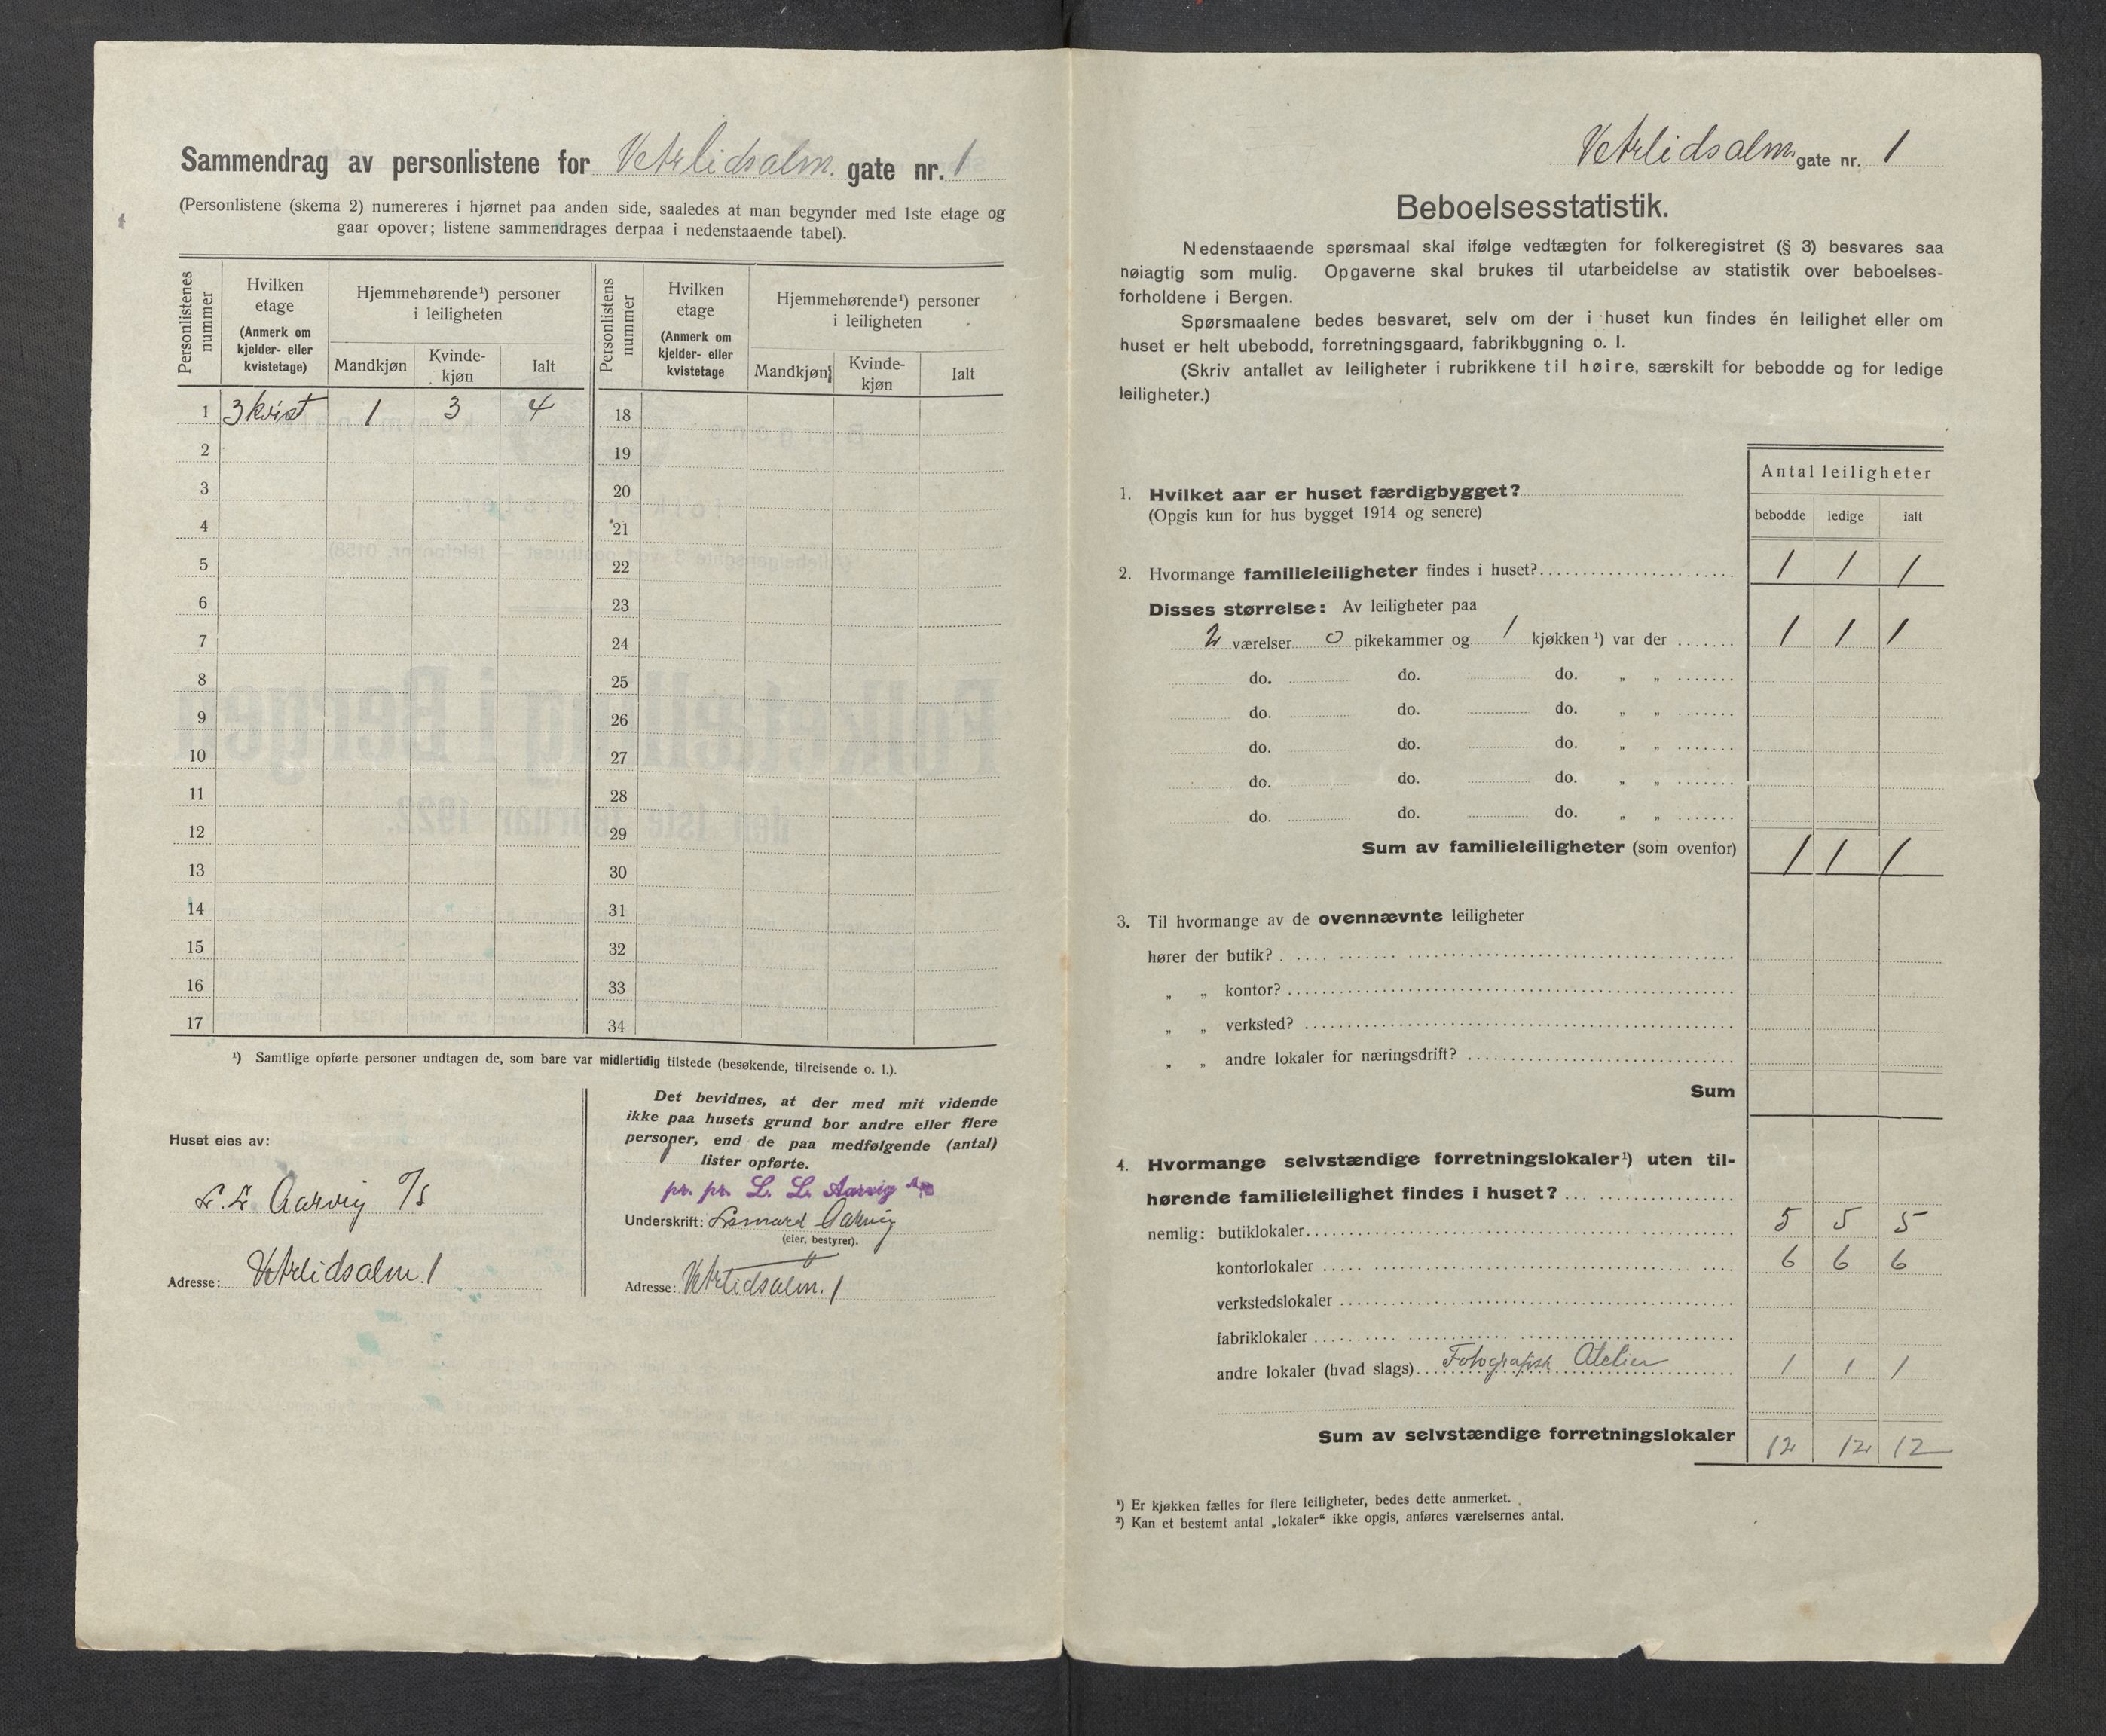 Sammendrag av personlistene for Vetrlidsalm. gate nr. 1
(Personlistene (skema 2) numereres i hjørnet paa anden side, saaledes at man begynder med 1ste etage og
gaar opover; listene sammendrages derpaa i nedenstaaende tabel).
Personlistenes nummer | Hvilken etage (Anmerk om kjelder- eller kvistetage) | Hjemmehørende¹) personer i leiligheten | Personlistens nummer | Hvilken etage (Anmerk om kjelder- eller kvistetage | Hjemmehørende¹) personer i leiligheten
Mandkjøn | Kvindekjøn | Ialt | Mandkjøn | Kvindekjøn | Ialt
1 3 kvist 1 3 4 18
2 19
3 20
4 21
5 22
6 23
7 24
8 25
9 26
10 27
11 28
12 29
13 30
14 31
15 32
16 33
17 34
¹) Samtlige opførte personer undtagen de, som bare var midlertidig tilstede (besøkende, tilreisende o. l.).
Huset eies av:
L. L. Aarvig A/S
Adresse: Vetrlidsalm. 1
Det bevidnes, at der med mit vidende
ikke paa husets grund bor andre eller flere
personer, end de paa medfølgende (antal)
1 lister opførte.
pr. pr. L. L. Aarvig A/S
Underskrift: Lennard Aarvig
(eier, bestyrer).
Adresse: Vetrlidsalm. 1
Vetrlidsalm. gate nr. 1
Beboelsesstatistik.
Nedenstaaende spørsmaal skal ifølge vedtægten for folkeregistret (§ 3) besvares saa
nøiagtig som mulig. Opgaverne skal brukes til utarbeidelse av statistik over beboelses-
forholdene i Bergen.
Spørsmaalene bedes besvaret, selv om der i huset kun findes én leilighet eller om
huset er helt ubebodd, forretningsgaard, fabrikbygning o. l.
(Skriv antallet av leiligheter i rubrikkene til høire, særskilt for bebodde og for ledige
leiligheter.)
Antal leiligheter
bebodde ledige ialt
1. Hvilket aar er huset færdigbygget?
(Opgis kun for hus bygget 1914 og senere)
2. Hvormange familieleiligheter findes i huset? 1 1 1
Disses størrelse: Av leiligheter paa
2 værelser 0 pikekammer og 1 kjøkken ¹) var der 1 1 1
do. do. do. „ „
do. do. do. „ „
do. do. do. „ „
do. do. do. „ „
do. do. do. „ „
Sum av familieleiligheter (som ovenfor) 1 1 1
3. Til hvormange av de ovennævnte leiligheter
hører der butik?
„ „ kontor?
„ „ verksted?
„ „ andre lokaler for næringsdrift?
Sum
4. Hvormange selvstændige forretningslokaler¹) uten til-
hørende familieleilighet findes i huset?
nemlig: butiklokaler 5 5 5
kontorlokaler 6 6 6
verkstedslokaler
fabriklokaler
andre lokaler (hvad slags) Fotografisk Atelier 1 1 1
Sum av selvstændige forretningslokaler 12 12 12
¹) Er kjøkken fælles for flere leiligheter, bedes dette anmerket.
²) Kan et bestemt antal „lokaler“ ikke opgis, anføres værelsernes antal.